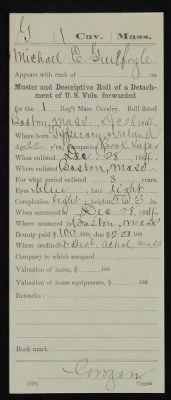 G | 1 | Cav. | Mass.
Michael E. Guilfoyle
Appears with rank of
Muster and Descriptive Roll of a Detachment of U. S. Vols. forwarded
for the 1 Reg't Mass. Cavalry. Roll dated
Boston, Mass., Dec 28, 1864.
Where born Tipperary, Ireland
Age y'rs; occupation Book keeper
When enlisted Dec 28, 1864.
Where enlisted Boston, Mass.
For what period enlisted 3 years.
Eyes blue; hair light
Complexion light; height 5 ft. in.
When mustered in Dec 28, 1864.
Where mustered in Boston, Mass
Bounty paid $ 100; due $ 100
Where credited Mass
Company to which assigned
Valuation of horse, $ 100
Valuation of horse equipments, $ 100
Remarks:
Book mark:
Grogan
Copyist.